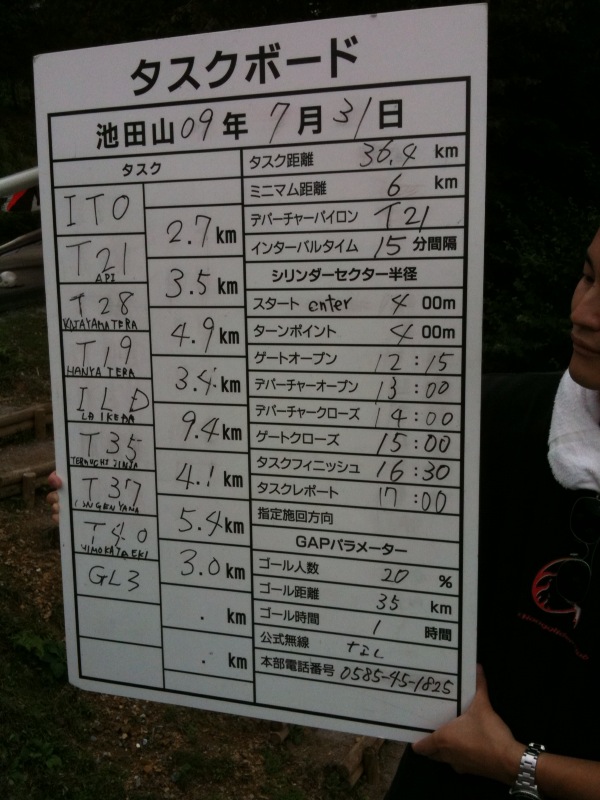 タスクボード
池田山 09 年 7 月 31 日
タスク
ITO
2.7 km
T21
API
3.5 km
T28
KATAYAMATERA
4.9 km
T19
HANYATERA
3.4 km
ILD
LA IKEDA
9.4 km
T35
TERAUCHI JINJA
4.1 km
T37
5.4 km
T40
3.0 km
GL3
. km
. km
タスク距離 36.4 km
ミニマム距離 6 km
デパーチャーパイロン T21
インターバルタイム 15 分間隔
シリンダーセクター半径
スタート enter 4 00m
ターンポイント 4 00m
ゲートオープン 12:15
デパーチャーオープン 13:00
デパーチャークローズ 14:00
ゲートクローズ 15:00
タスクフィニッシュ 16:30
タスクレポート 17:00
指定施回方向
GAPパラメーター
ゴール人数 20 %
ゴール距離 35 km
ゴール時間 1 時間
公式無線 ナシ
本部電話番号 0585-45-1825